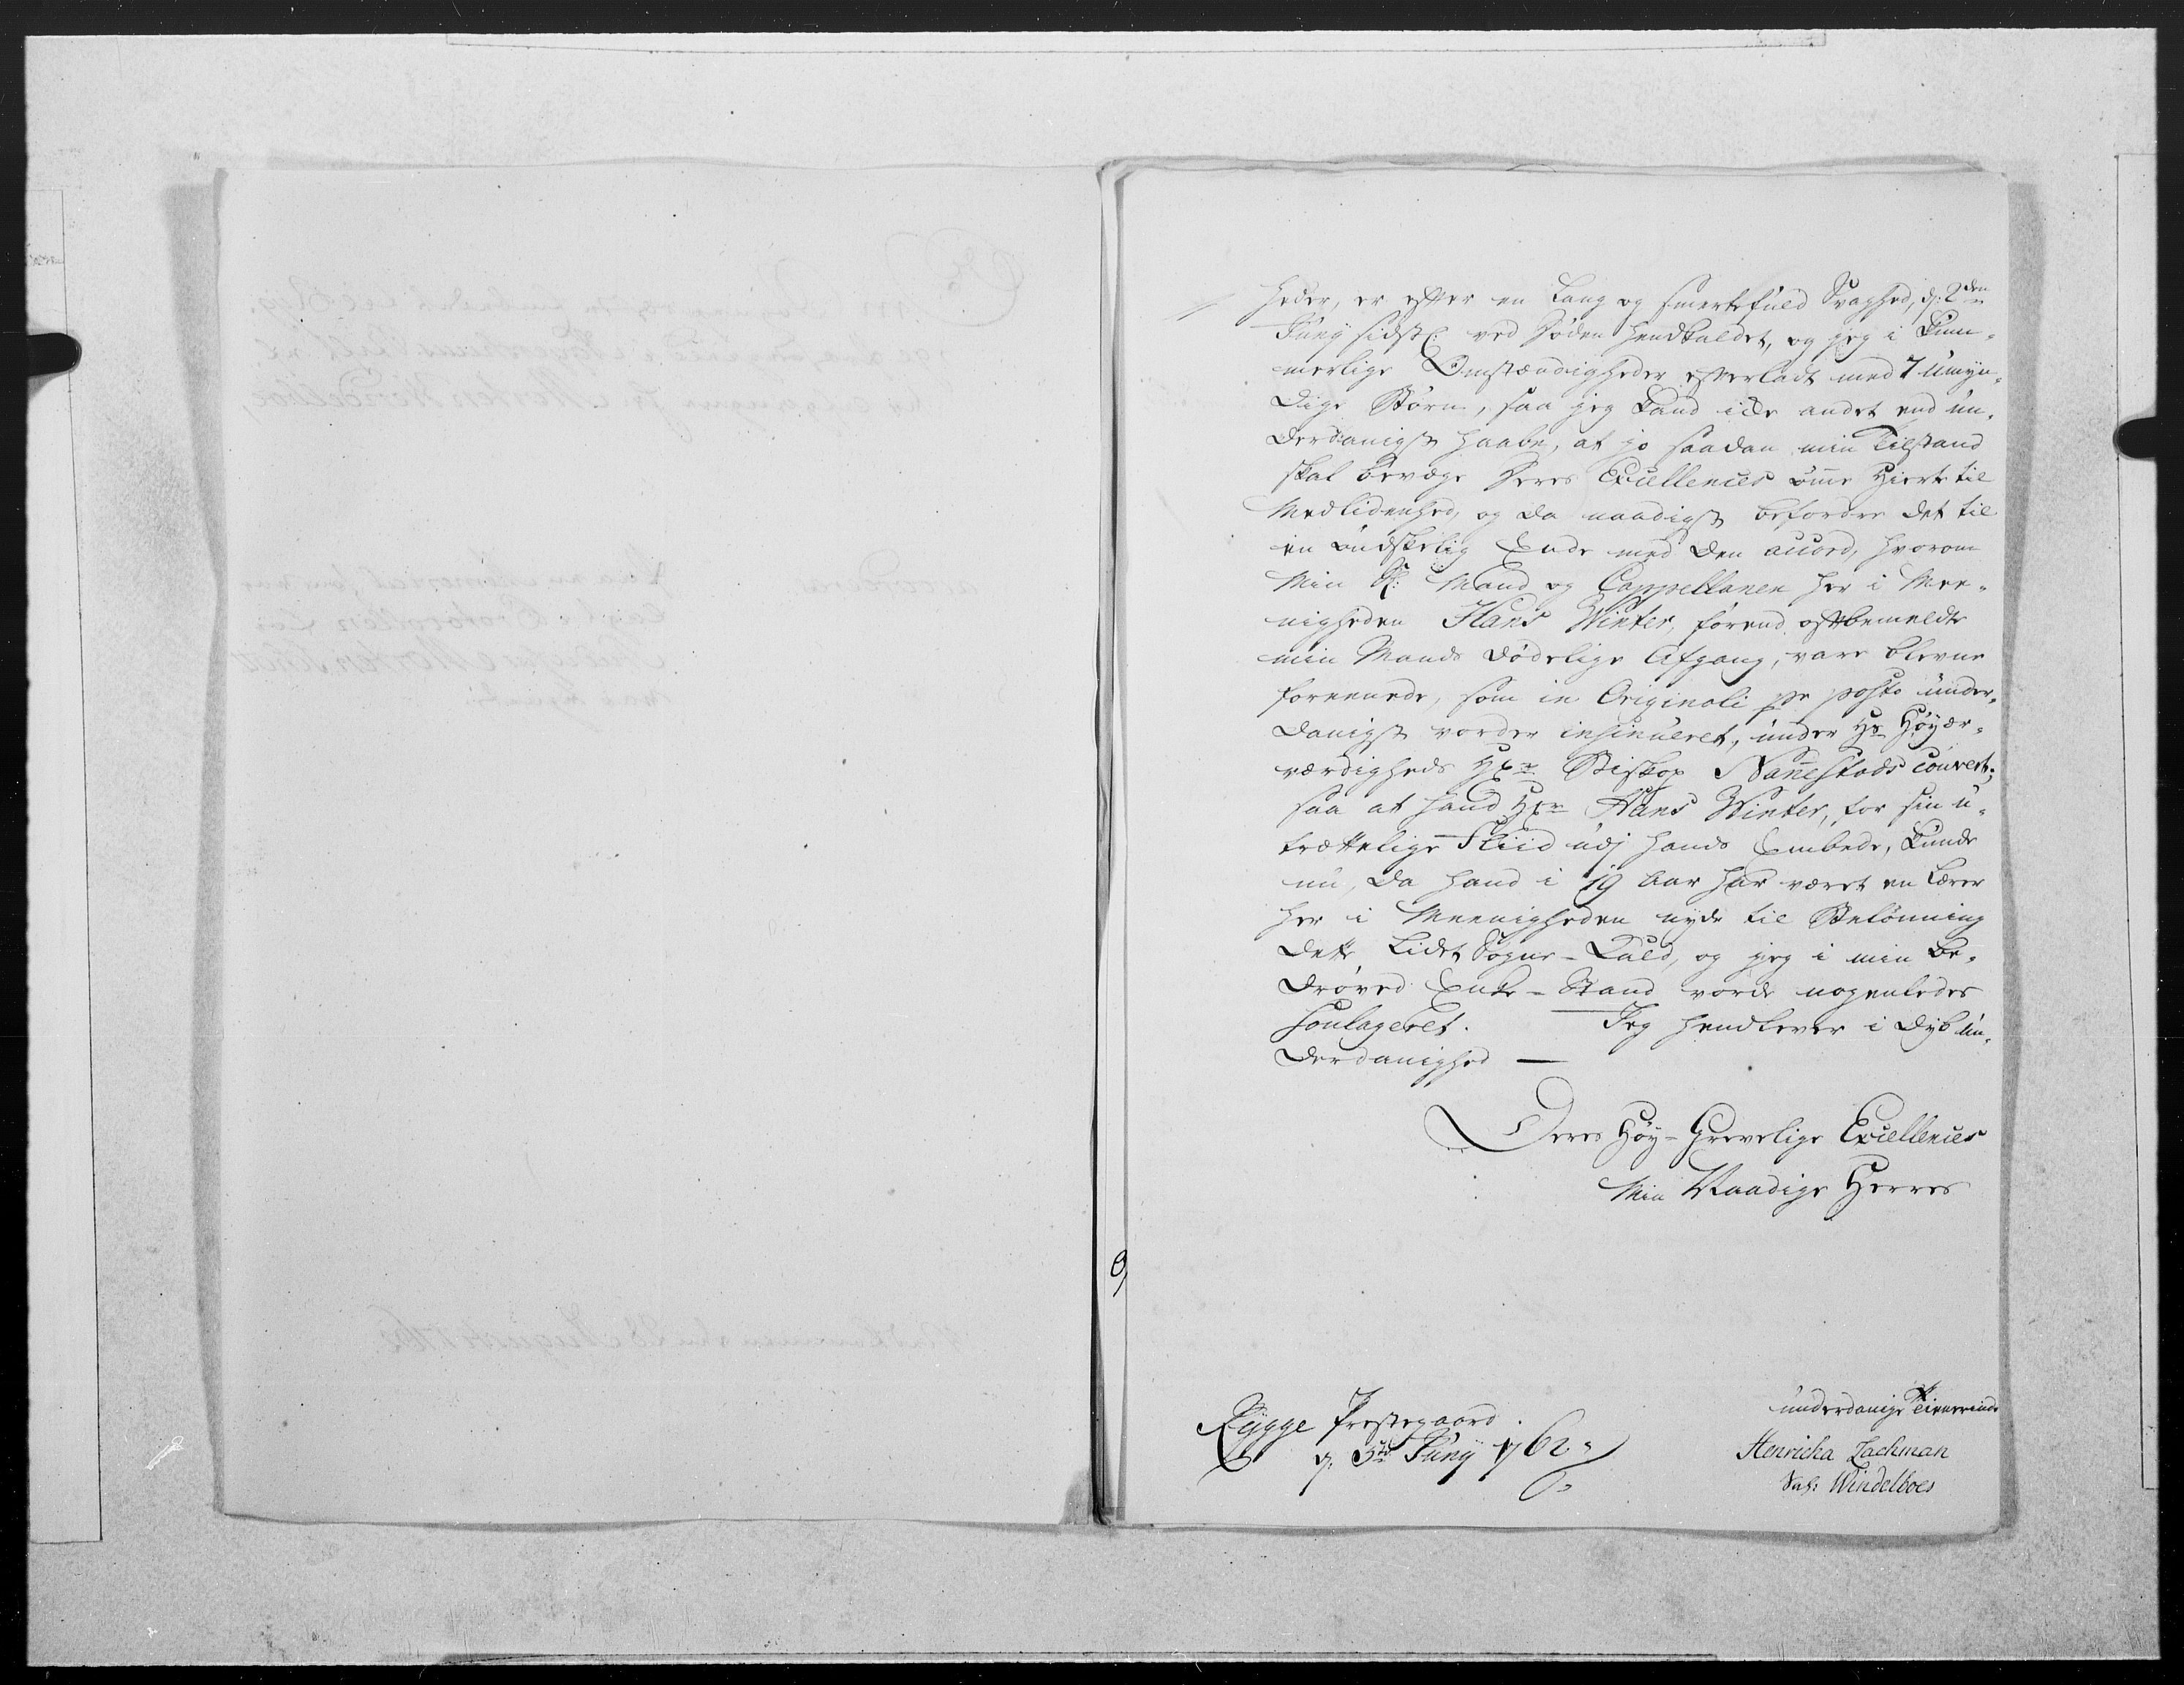 heder, er efter en Lang og smertefuld Svaghed, d: 2den
Juny sidstl: ved Døden hendkaldet, og jeg i Kum-
merlige Omstændigheder efterladt med 7 umyn-
dige Børn, saa jeg Kand icke andet end un-
derdanigst haabe, at jo saadan min Tilstand
skal bevæge Deres Excellences ømme Hierte til
Medlidenhed, og da naadigst befordre det til
en ønskelig Ende med den accord, hvorom
Min Sl: Mand og Cappellanen her i Mee-
nigheden Hans Winter, førend oftbemeldte
min Mands dødelige Afgang, vare blevne
foreenede, som in Originali pr posto under-
danigst vorder insinueret, under Hs Høyær-
værdigheds Hrr Biskop Nannestads couvert;
saa at hand Hrr Hans Winter, for sin u-
trættelige Fliid udj hands Embede, Kunde
nu, da hand i 19 Aar har været en Lærer
her i Meenigheden nyde til Belønning
dette Lidet Sogne-Kald, og jeg i min Be-
drøved Enke-Stand vorde nogenledes
soulageret. Jeg henlever i dyb un-
derdanighed —
Deres Høy-Grevelige Excellences
Min Naadige Herres
9
underdanige Tienerinde
Rygge Præstegaard
d: 5te Juny 1762
Henricha Lachman
Sal: Windelboes